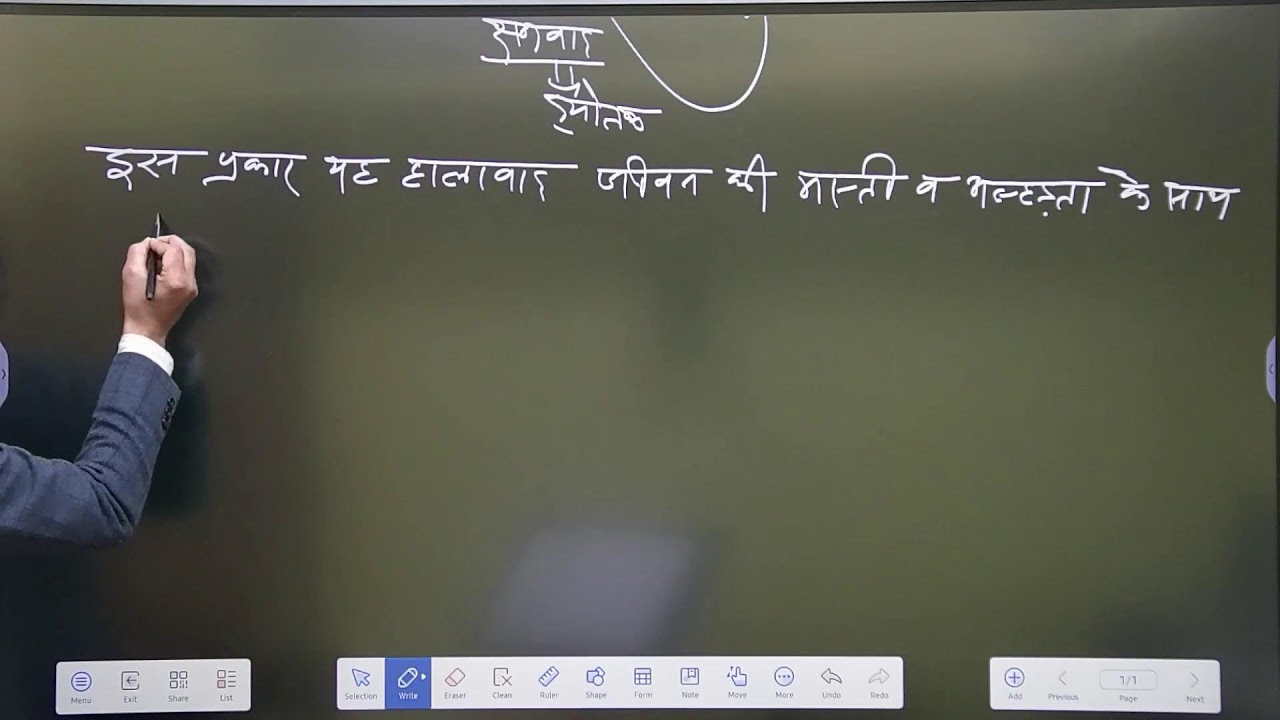 इस प्रकार यह हालावाद जीवन की मास्ती व अल्हड़ता के साथ
Menu Exit Share List
Selection Write Eraser Clean Ruler Shape Form Note Move More Undo Redo
Add Previous 1/1 Page Next